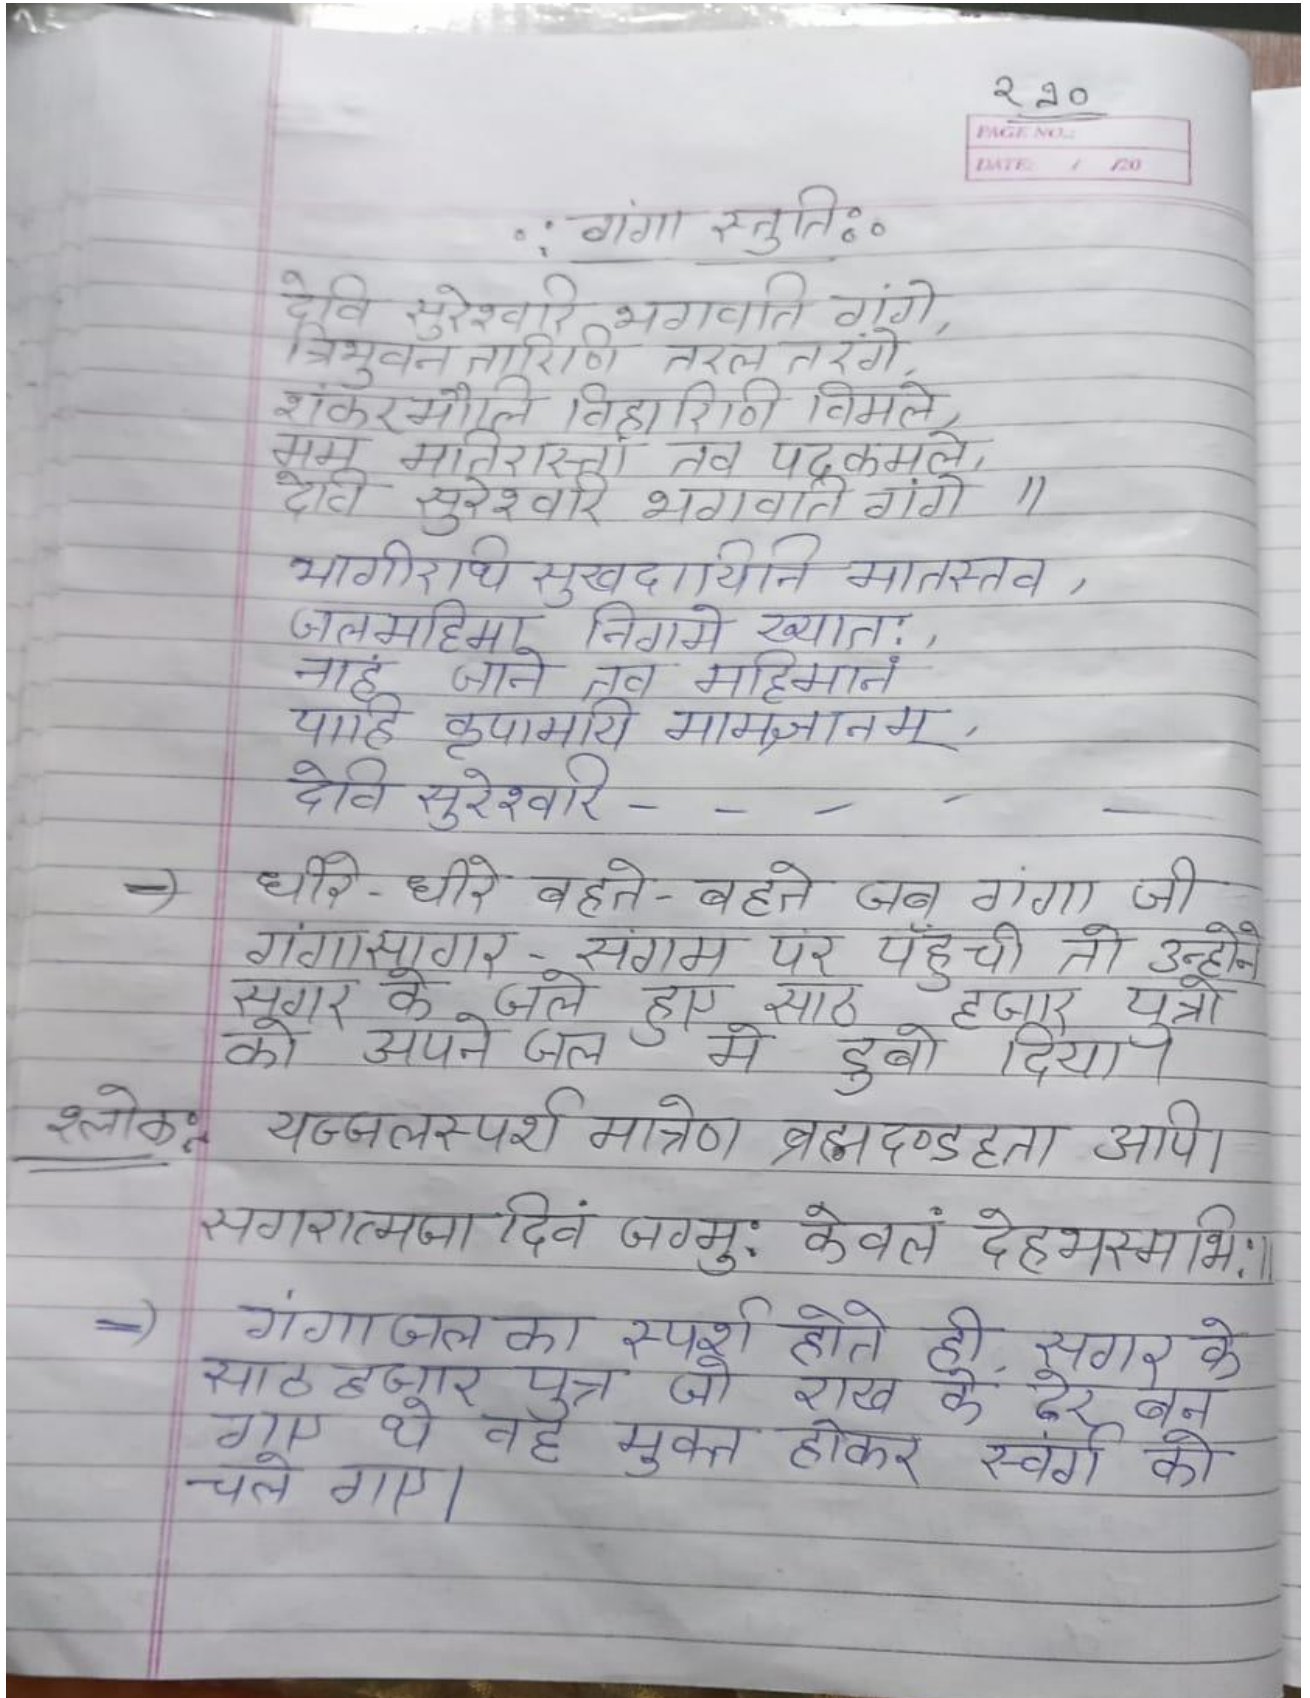 २१०
PAGE NO.:
DATE: / /20
∴ गंगा स्तुतिः॰
देवि सुरेश्वरि भगवति गंगे,
त्रिभुवन तारिणि तरल तरंगे,
शंकरमौलि विहारिणी विमले,
मम मतिरास्तां तव पदकमले,
देवि सुरेश्वरि भगवति गंगे ॥
भागीरथि सुखदायिनि मातस्तव,
जलमहिमा निगमे ख्यातः,
नाहं जाने तव महिमानं
पाहि कृपामयि मामज्ञानम्,
देवि सुरेश्वरि - - - - -
→ धीरे - धीरे बहते - बहते जब गंगा जी
गंगासागर - संगम पर पहुँची तो उन्होंने
सगर के जले हुए साठ हजार पुत्रो
को अपने जल मे डुबो दिया।
श्लोकः यज्जलस्पर्श मात्रेण ब्रह्मदण्डहता अपि।
सगरात्मजा दिवं जग्मुः केवलं देहभस्मभिः॥
→ गंगाजल का स्पर्श होते ही, सगर के
साठ हजार पुत्र जो राख के ढेर बन
गए थे वह मुक्त होकर स्वर्ग को
चले गए।